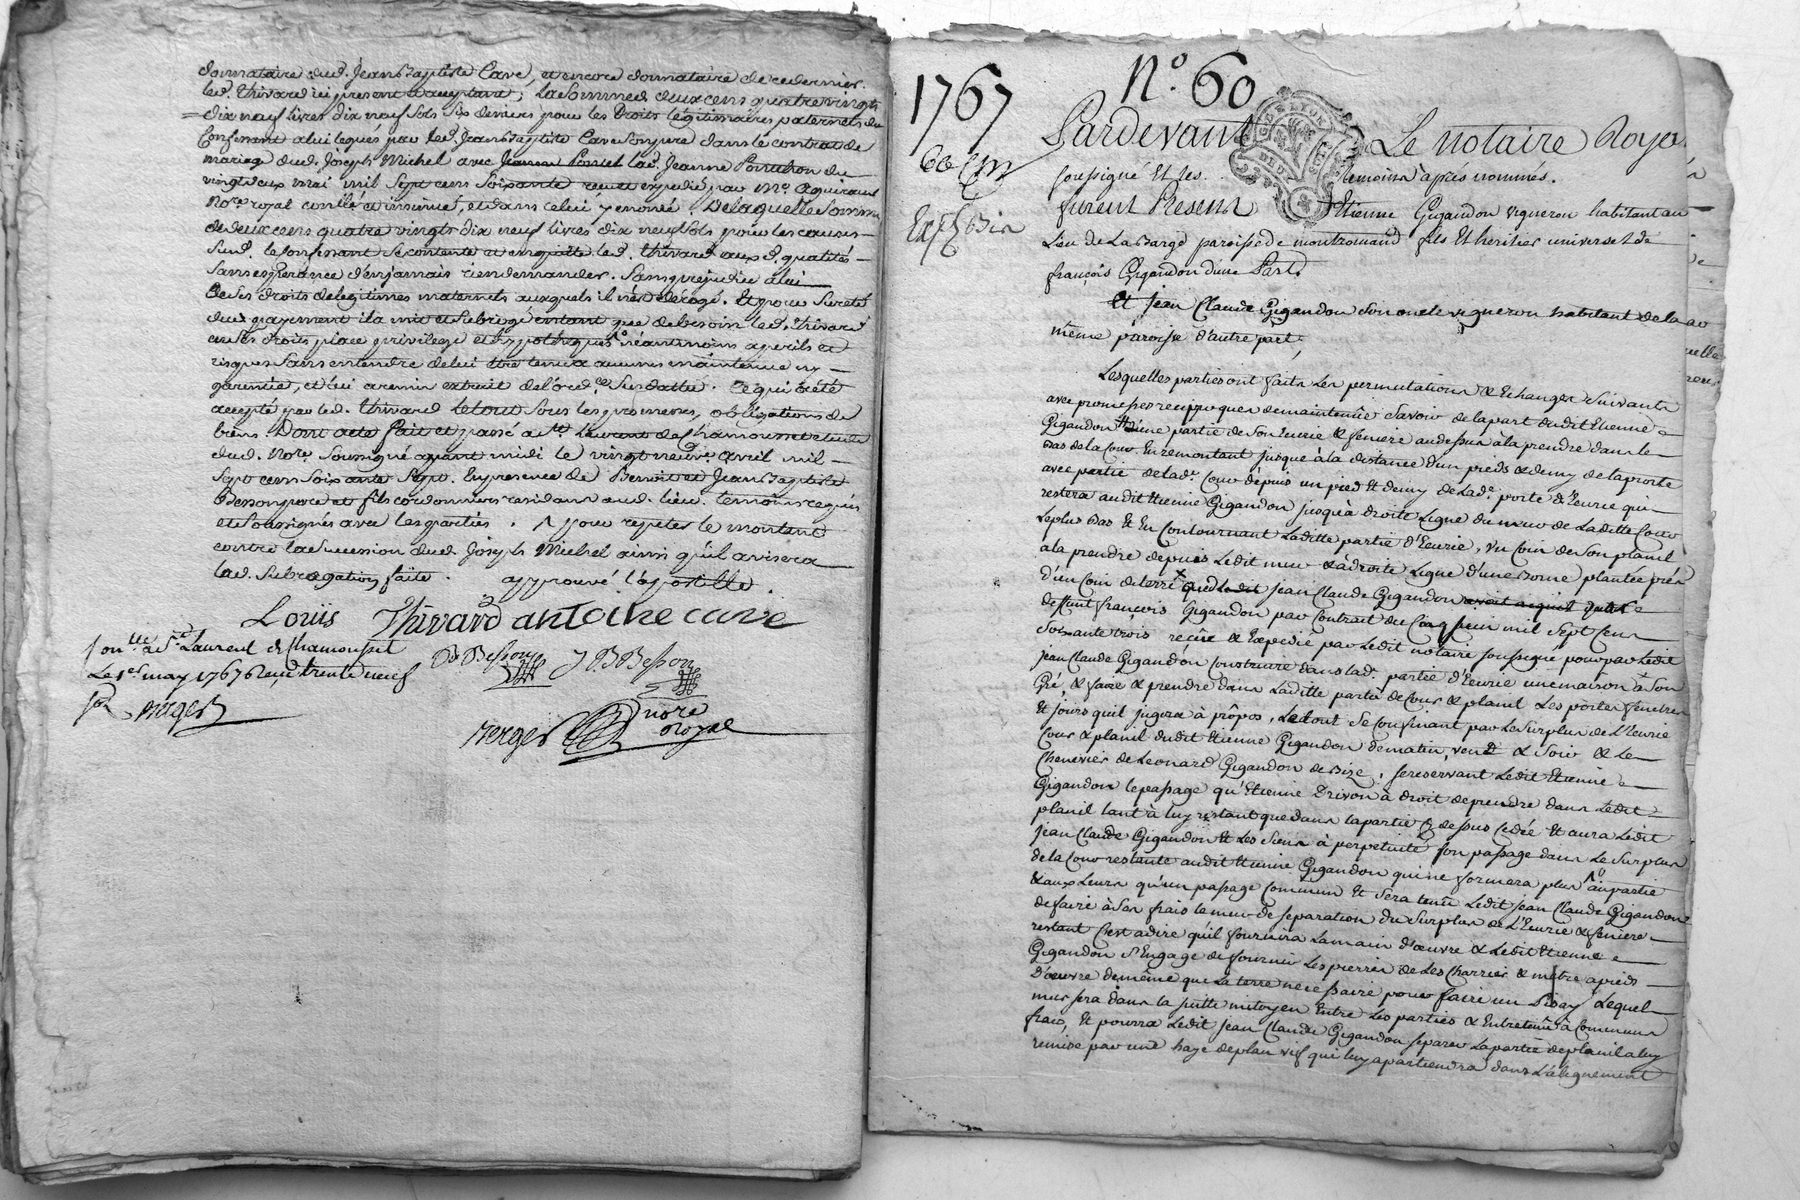 donnataire dud. Jean Baptiste Cave, et encore donnataire de ce dernier.
led. Thivard ici present et acceptant, la somme de deux cens quatre vingt
dix neuf livres dix neuf sols six deniers pour les Droits legitimaires paternels du
Confessant a lui legués par led. Jean Baptiste Cave son pere dans le contrat de
mariage dud. Joseph Michel avec lad. Jeanne Ponchon du
vingt deux mai mil sept cens soixante reçu et expedié par Me Aguiraud
Nore royal controllé et insinué, et dans celui y enoncé. De laquelle somme
de deux cens quatre vingts dix neuf livres dix neuf sols pour les causes
sud. le confessant se contente et en quitte led. Thivard aux d. qualités
sans esperance d'en jamais rien demander. Sans prejudice a lui
de ses droits de legitimes maternels auxquels il n'est derogé. Et pour sureté
dud. payement il a mis et subrogé entant que de besoin led. Thivard
en ses droits place privilege et hypotheques neanmoins a perils et
risques sans entendre de lui être tenu a aucunes maintenue ny
garentie, et lui a remis extrait de l'ord. ce sus datté. Ce qui a été
accepté par led. Thivard le tout sous les promesses, obligations de
biens. Dont acte fait et passé a St. Laurent de Chamousset etude
dud. Nore. soussigné avant midi le vingt neuve avril mil
sept cens soixante sept. En presence de Benoit et Jean Baptiste
Besson pere et fils cordonniers residans aud. lieu temoins requis
et soussignés avec les parties. A pour repeter le montant
contre la succession dud. Joseph Michel ainsi qu'il avisera
lad. subrogation faite. approuvé l'apostille.
Louis Thivard antoine cave
B Besson J B Besson
Con.lle a St. Laurent de Chamousset
Le 1er may 1767 Reçu trente neuf
verger
verger nore royal
1767
N.º 60
Pardevant Le notaire Royal
soussigné Et les temoins aprés nommés.
furent Presens Etienne Gigandon vigneron habitant au
Lieu de La Barge paroisse de montromand fils Et heritier universel de
françois Gigandon d'une Part
Et Jean Claude Gigandon son oncle vigneron habitant de la
même paroisse d'autre part,
Lesquelles parties ont faits Les permutations & Echanges suivants
avec promesses reciproques de maintenüe Savoir de la part dudit Etienne
Gigandon d'une partie de son Eurie & feniere au dessus à la prendre dans le
bas de la Cour En remontant jusque à la distance d'un pieds & demy de la porte
avec partie de lade. Cour dépuis un pied Et demy de Lade. porte d'Eurie qui
restera audit Etienne Gigandon jusqu'à droite Ligne du mur de Laditte Cour
le plus bas Et En Contournant Laditte partie d'Eurie, Un Coin de son planil
a la prendre depuis Ledit mur & à droite Ligne d'une Borne plantée prés
d'un Coin de terre que Ledit Jean Claude Gigandon
deffunt françois Gigandon par Contrat du Cinq juin mil sept Cens
soixante trois, reçüe & Expedié par Ledit notaire soussigné pour par Ledit
Jean Claude Gigandon Construire dans lad. partie d'Eurie une maison à son
Gré, & faire & prendre dans Laditte partie de Cour & planil Les portes fenetres
Et jours qu'il jugera à prôpos, Le tout se Confinant par Le surplus de L'Eurie
Cour & planil dudit Etienne Gigandon de matin, vent & soir & Le
Chenevier de Leonard Gigandon de Bize, se reservant Ledit Etienne
Gigandon le passage qu'Etienne Drivon à droit de prendre dans Ledit
planil tant à luy restant que dans la partie cy dessus Cedée Et aura Ledit
Jean Claude Gigandon Et Les siens à perpetuité son passage dans Le surplus
de la Cour restante audit Etienne Gigandon qui ne formera plus
& aux Leurs qu'un passage Commun Et sera tenû Ledit Jean Claude Gigandon
de faire à ses frais le mur de separation du surplus de L'Eurie & feniere
restant C'est a dire qu'il fournira La main d'œuvre & Ledit Etienne
Gigandon s'Engage de fournir Les pierres de Les Charrier & mettre a pieds
D'œuvre de même que La terre necessaire pour faire un Pisay Lequel
mur sera dans la suitte mitoyen Entre Les parties & Entretenû à Communs
frais, Et pourra Ledit Jean Claude Gigandon separer La partie de planil a luy
remise par une haye de plan vif qui luy apartiendra dans L'alignement